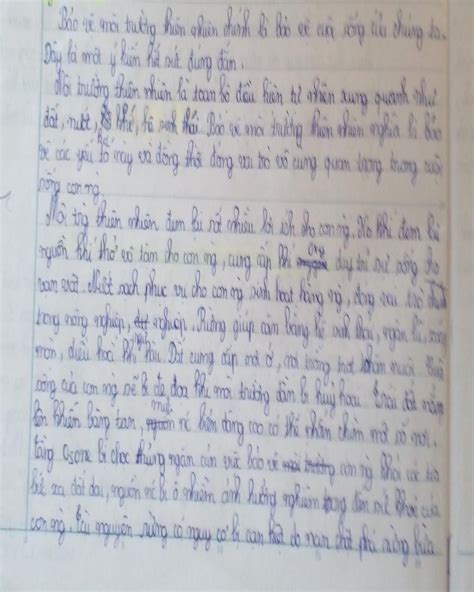 Bảo vệ môi trường thiên nhiên chính là bảo vệ cuộc sống của chúng ta.
Đây là một ý kiến hết sức đúng đắn.
Môi trường thiên nhiên là toàn bộ điều kiện tự nhiên xung quanh như
đất, nước, khí, hệ sinh thái. Bảo vệ môi trường thiên nhiên nghĩa là bảo
vệ các yếu tố này và đồng thời đóng vai trò vô cùng quan trọng trong cuộc
sống con ng.
Môi trg thiên nhiên đem lại rất nhiều lợi ích cho con ng. Ko khí đem lại
nguồn khí thở vô tận cho con ng, cung cấp khí duy trì sự sống cho
vạn vật. Nước sạch phục vụ cho con ng sinh hoạt hàng ng, đóng vai trò
trong nông nghiệp, nghiệp. Rừng giúp cân bằng hệ sinh thái, ngăn lũ,
mòn, điều hoà khí hậu. Đất cung cấp nơi ở, nơi trồng trọt chăn nuôi.
sống của con ng sẽ bị đe doạ khi môi trường dần bị huỷ hoại. Trái đất nóng
lên khiến băng tan, mực nc biển dâng cao có thể nhấn chìm một số nơi.
Tầng Ozone bị chọc thủng ngăn cản việc bảo vệ con ng khỏi các tia
bức xạ, nguồn nc bị ô nhiễm ảnh hưởng nghiêm trọng đến sức khoẻ của
con ng. Tài nguyên rừng có nguy cơ bị cạn kiệt do nạn chặt phá rừng bừa